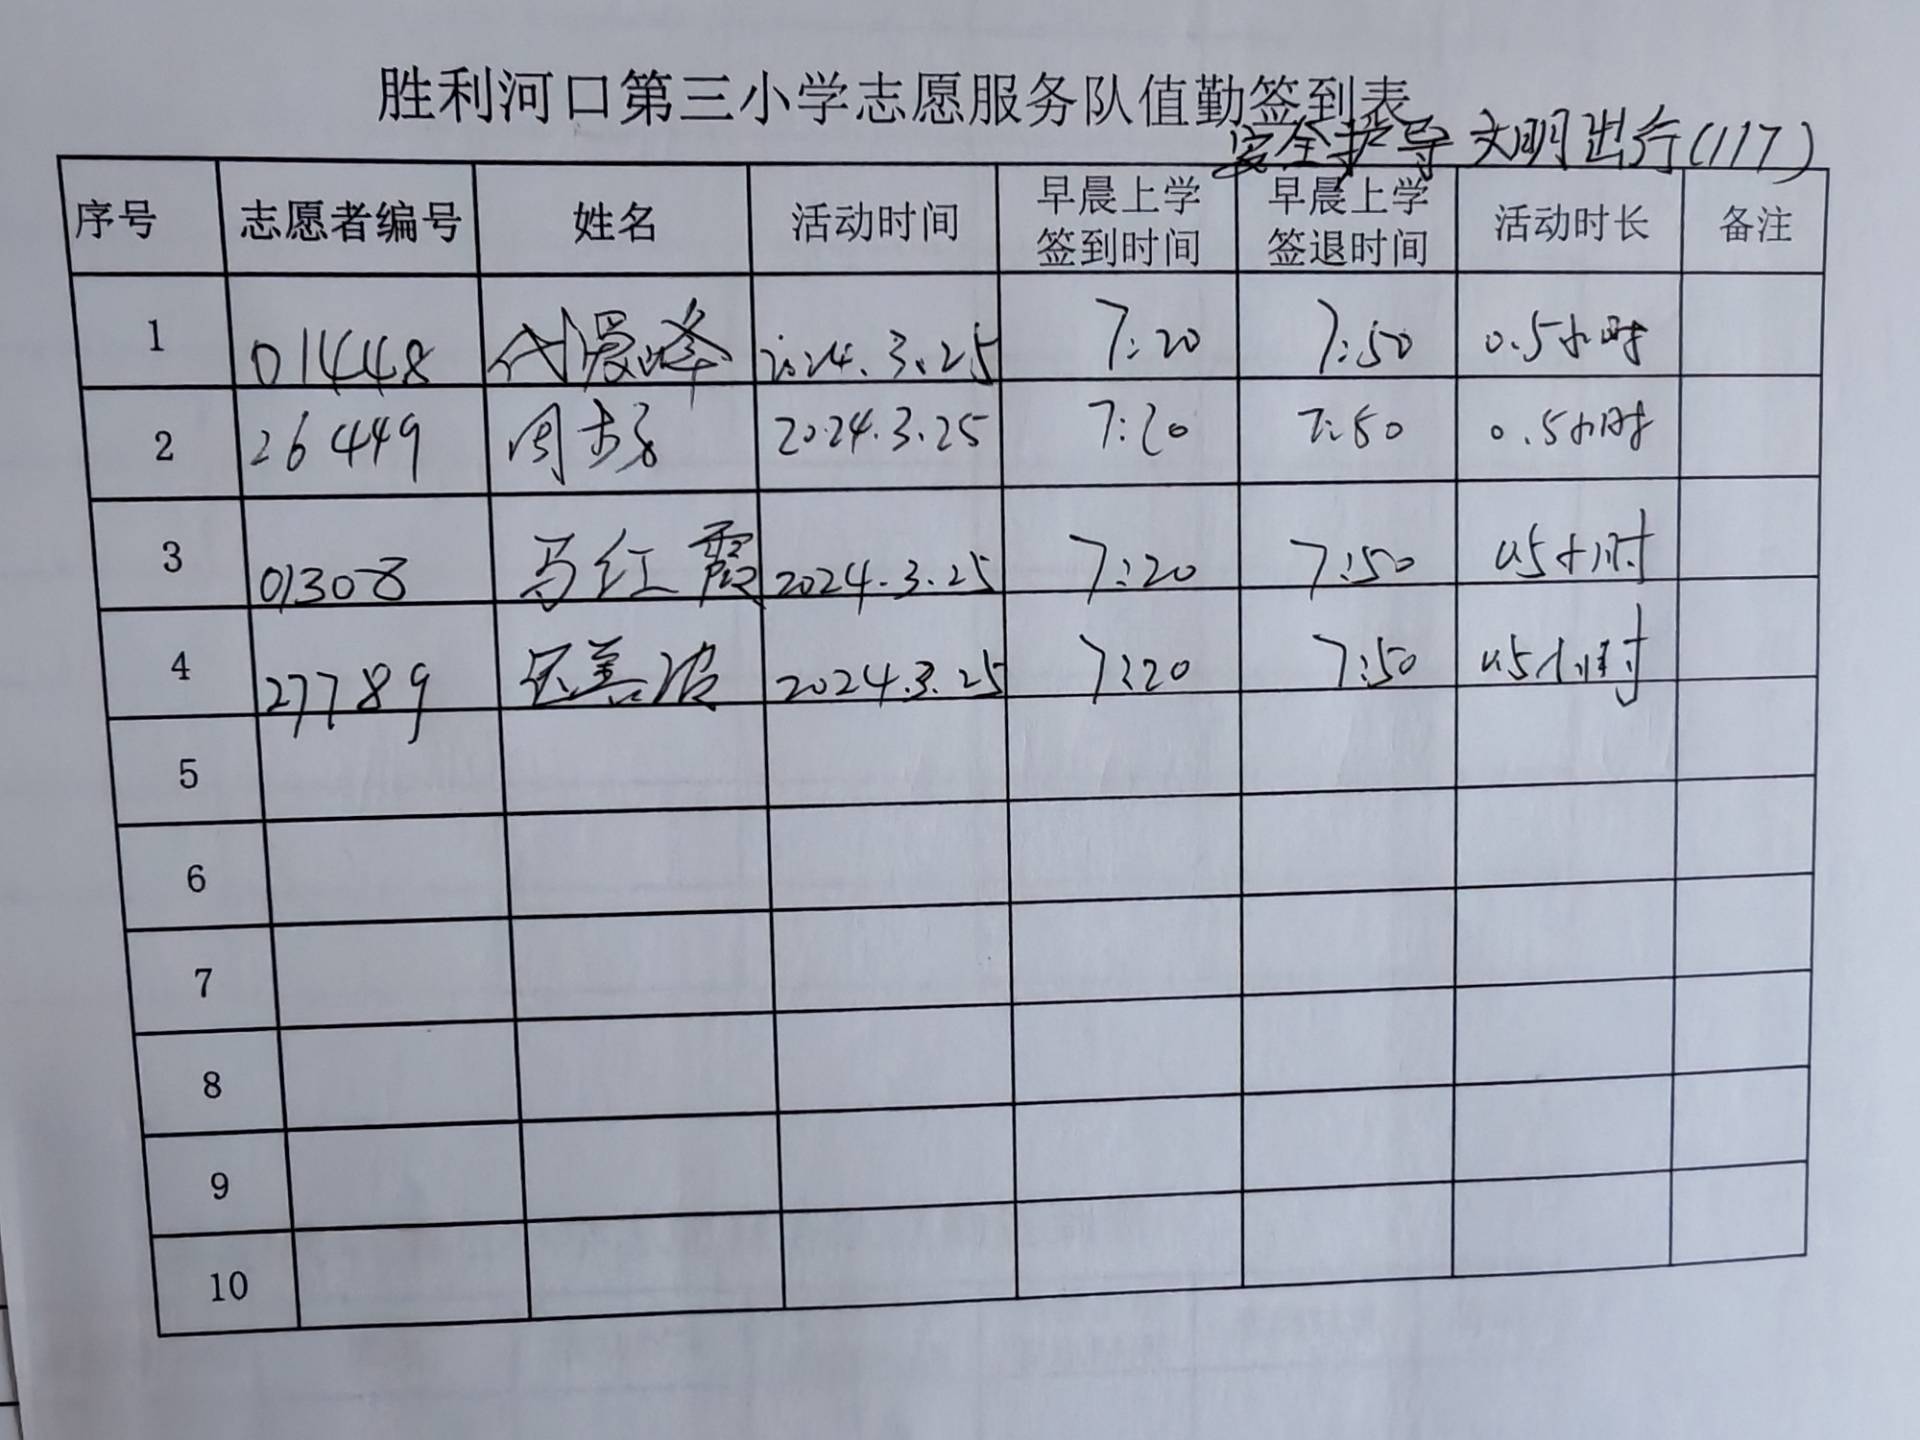 胜利河口第三小学志愿服务队值勤签到表
安全护导 文明出行(117)
序号 志愿者编号 姓名 活动时间 早晨上学签到时间 早晨上学签退时间 活动时长 备注
1 01448 代景峰 2024.3.25 7:20 7:50 0.5小时
2 26449 周 2024.3.25 7:20 7:50 0.5小时
3 01308 马红霞 2024.3.25 7:20 7:50 0.5小时
4 27789 善波 2024.3.25 7:20 7:50 0.5小时
5
6
7
8
9
10